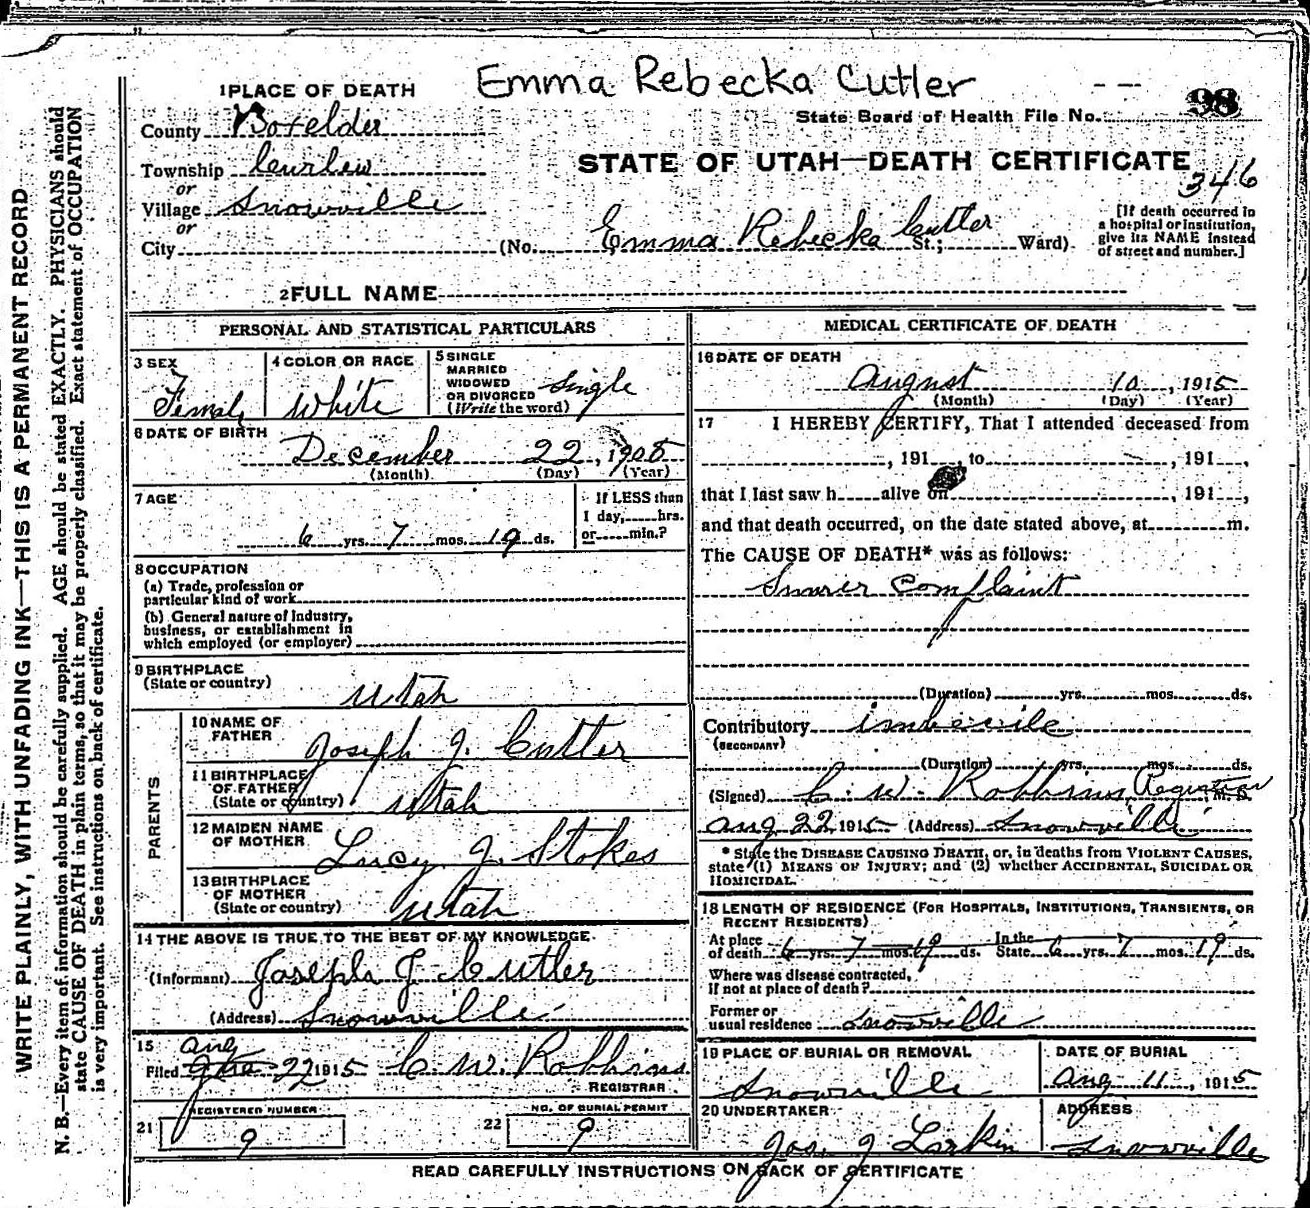 Emma Rebecka Cutler
98
1 PLACE OF DEATH
State Board of Health File No.
County Boxelder
STATE OF UTAH—DEATH CERTIFICATE
346
Township Curlew
or
Village Snowville
or
City (No. Emma Rebecka Cutler St.; Ward)
[If death occurred in
a hospital or institution,
give its NAME instead
of street and number.]
2 FULL NAME
PERSONAL AND STATISTICAL PARTICULARS
3 SEX
Female
4 COLOR OR RACE
White
5 SINGLE
MARRIED
WIDOWED
OR DIVORCED
(Write the word)
Single
6 DATE OF BIRTH
December 22, 1908
(Month) (Day) (Year)
7 AGE
6 yrs. 7 mos. 19 ds.
If LESS than
1 day, hrs.
or min.?
8 OCCUPATION
(a) Trade, profession or
particular kind of work
(b) General nature of Industry,
business, or establishment in
which employed (or employer)
9 BIRTHPLACE
(State or country)
Utah
PARENTS
10 NAME OF
FATHER
Joseph J. Cutler
11 BIRTHPLACE
OF FATHER
(State or country)
Utah
12 MAIDEN NAME
OF MOTHER
Lucy J. Stokes
13 BIRTHPLACE
OF MOTHER
(State or country)
Utah
14 THE ABOVE IS TRUE TO THE BEST OF MY KNOWLEDGE
(Informant) Joseph J. Cutler
(Address) Snowville
15 Aug
Filed 22 1915 C. W. Robbins
REGISTRAR
REGISTERED NUMBER
21 9
NO. OF BURIAL PERMIT
22 9
MEDICAL CERTIFICATE OF DEATH
16 DATE OF DEATH
August 10, 1915
(Month) (Day) (Year)
17 I HEREBY CERTIFY, That I attended deceased from
, 191 , to , 191 ,
that I last saw h alive on , 191 ,
and that death occurred, on the date stated above, at m.
The CAUSE OF DEATH* was as follows:
Complaint
(Duration) yrs. mos. ds.
Contributory imbecile
(SECONDARY)
(Duration) yrs. mos. ds.
(Signed) C. W. Robbins, Registrar M. D.
Aug 22 1915 (Address) Snowville
* State the DISEASE CAUSING DEATH, or, in deaths from VIOLENT CAUSES,
state (1) MEANS OF INJURY; and (2) whether ACCIDENTAL, SUICIDAL OR
HOMICIDAL.
18 LENGTH OF RESIDENCE (FOR HOSPITALS, INSTITUTIONS, TRANSIENTS, OR
RECENT RESIDENTS)
At place
of death 6 yrs. 7 mos. 19 ds.
In the
State 6 yrs. 7 mos. 19 ds.
Where was disease contracted,
If not at place of death?
Former or
usual residence Snowville
19 PLACE OF BURIAL OR REMOVAL
Snowville
DATE OF BURIAL
Aug 11, 1915
20 UNDERTAKER
Jos. J Larkin
ADDRESS
Snowville
READ CAREFULLY INSTRUCTIONS ON BACK OF CERTIFICATE
WRITE PLAINLY, WITH UNFADING INK—THIS IS A PERMANENT RECORD
N. B.—Every item of information should be carefully supplied. AGE should be stated EXACTLY. PHYSICIANS should
state CAUSE OF DEATH in plain terms, so that it may be properly classified. Exact statement of OCCUPATION
is very important. See instructions on back of certificate.